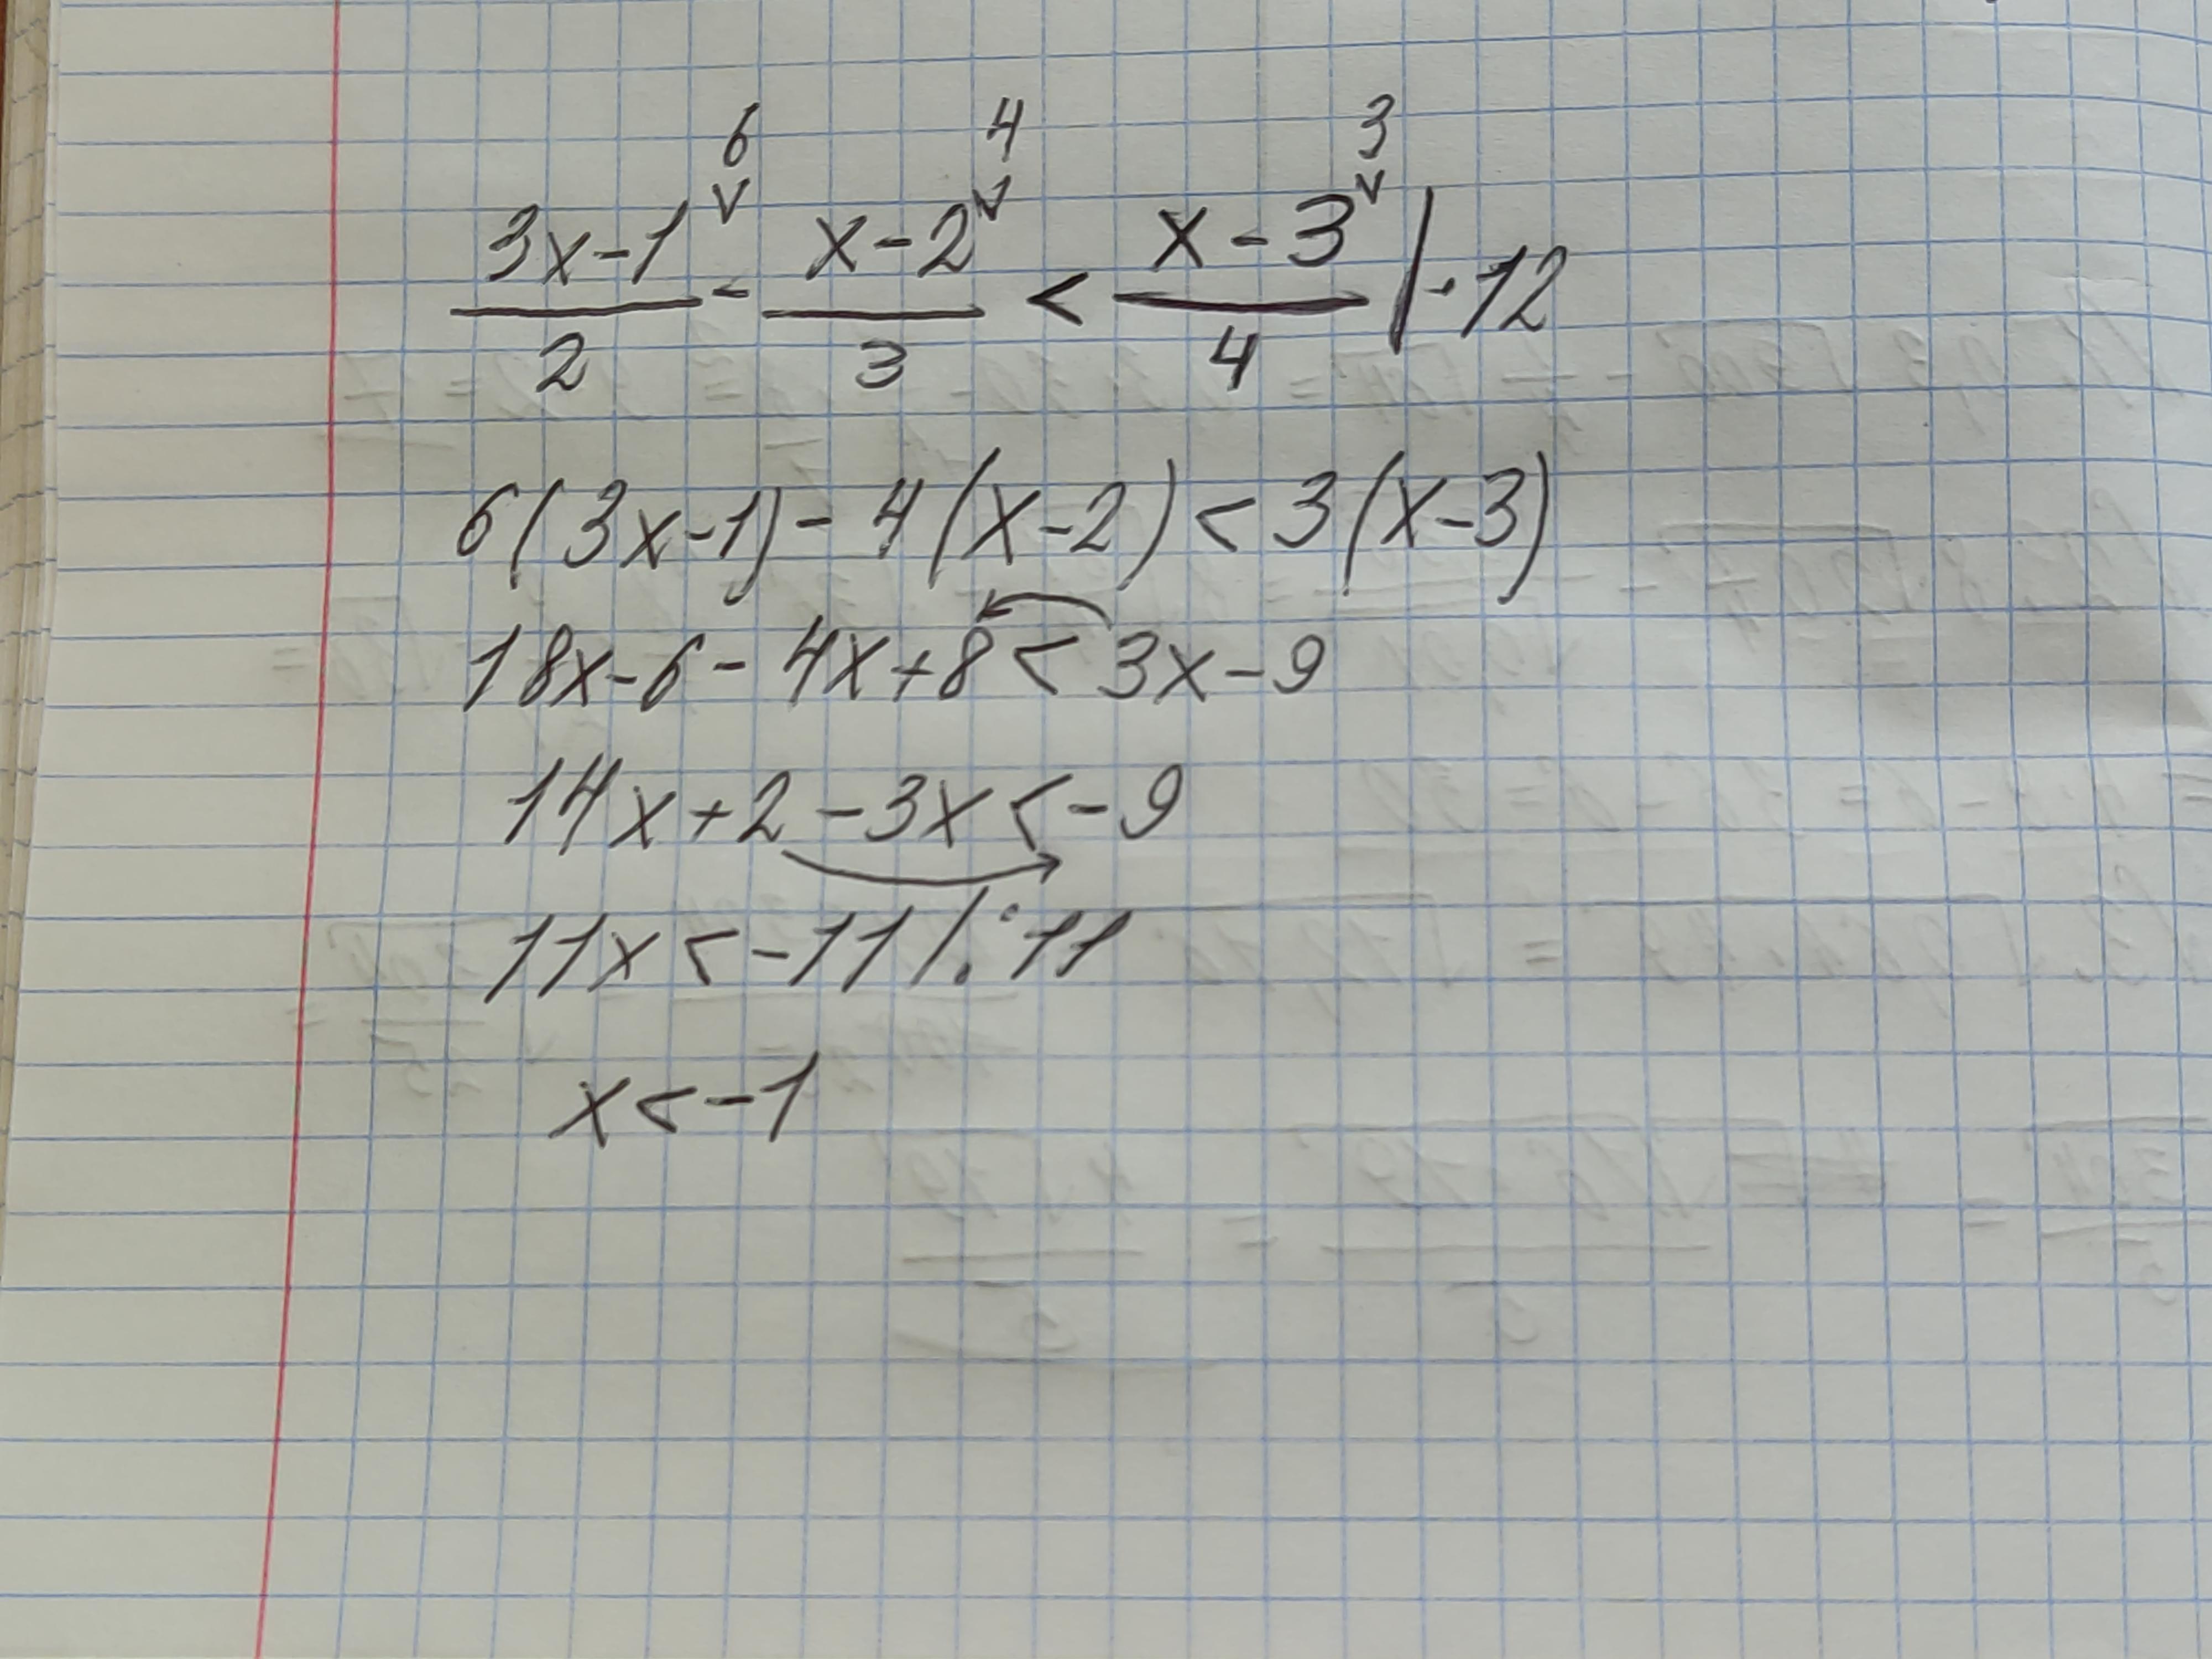 6 4 3
(3x-1)/2 - (x-2)/3 < (x-3)/4 | · 12
6(3x-1) - 4(x-2) < 3(x-3)
18x-6 - 4x+8 < 3x-9
14x+2 -3x < -9
11x < -11 | : 11
x < -1